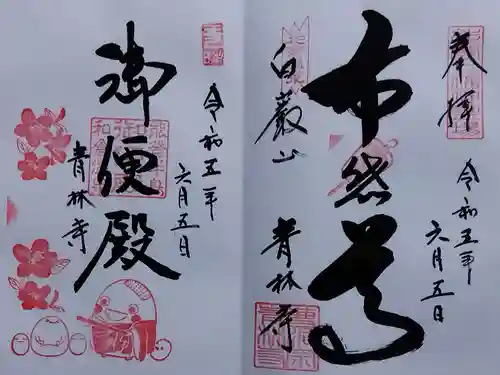 奉拝
令和五年
六月五日
布袋尊
白巖山
青林寺
令和五年
六月五日
御便殿
青林寺